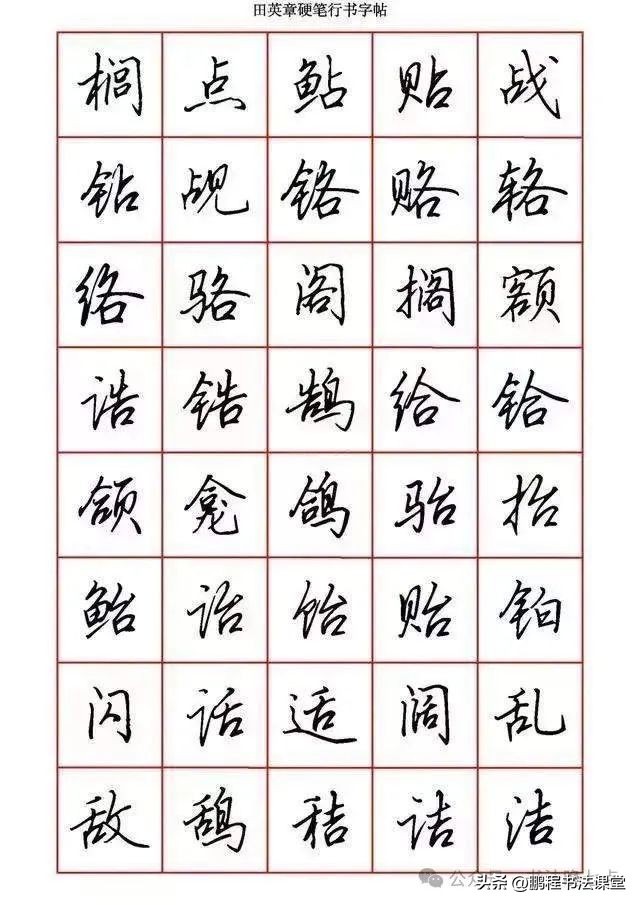 田英章硬笔行书字帖
榈 点 鲇 贴 战
钻 觇 铬 赂 辂
络 骆 阁 搁 额
诰 锆 鹄 给 铪
颌 龛 鸽 骀 抬
鲐 诒 饴 贻 铂
闪 话 适 阔 乱
敌 鸹 秸 诘 洁
头条 @鹏程书法课堂